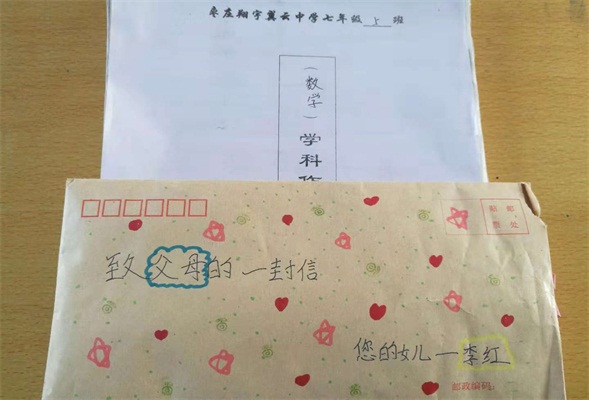 枣庄翔宇翼云中学七年级 5 班
(数学)学科作
贴邮
票处
致父母的一封信
您的女儿—李红
邮政编码: